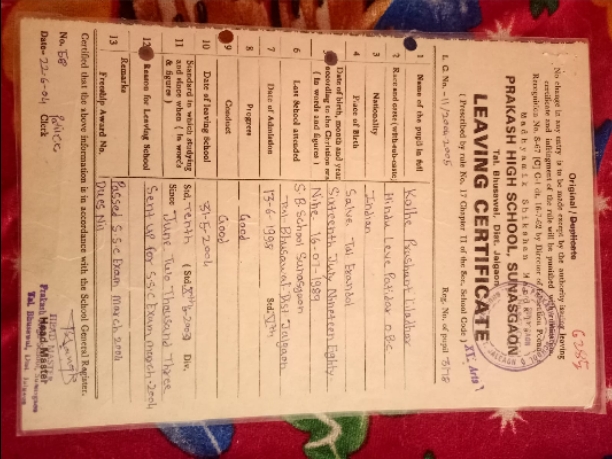 6285
Original Duplicate
No change in any entry is to be made except by the authority issuing leaving
certificate and infringement of the rule will be punished with
Madhyamik Shikshan Mandal
PRAKASH HIGH SCHOOL, SUNASGAON
Tal. Bhusawal, Dist. Jalgaon
LEAVING CERTIFICATE
( Prescribed by rule No. 17 Chapter II of the Sec. School Code )
L. C. No. - 11/2004-2005
Reg. No. of pupil 3178
1 Name of the pupil in full Kolhe Prashant Liladhar
2 Race and caste (with sub-caste) Hindu Leva Patidar OBC
3 Nationality Indian
4 Place of Birth Salve Tal Erandol
5 Date of birth, month and year
according to the Christian era
( in words and figures )
Sixteenth July Nineteen Eighty
Nine 16-07-1989
6 Last School attended S B School Sunasgaon
Tal. Bhusawal Dist Jalgaon
7 Date of Admission 13-6-1998 Std.
8 Progress Good
9 Conduct Good
10 Date of leaving School 31-5-2004
11 Standard in which studying
and since when ( in words
& figures )
Std. Tenth ( Std. ) Div.
Since June Two Thousand Three
12 Reason for Leaving School Sent up for S.S.C Exam march-2004
Remarks Passed S.S.C Exam March 2004
13 Freeship Award No. Dues Nil
Certified that the above information is in accordance with the School General Register.
No.
Date- 22-6-04 Clerk
Head Master
Tal. Bhusawal, Dist. Jalgaon